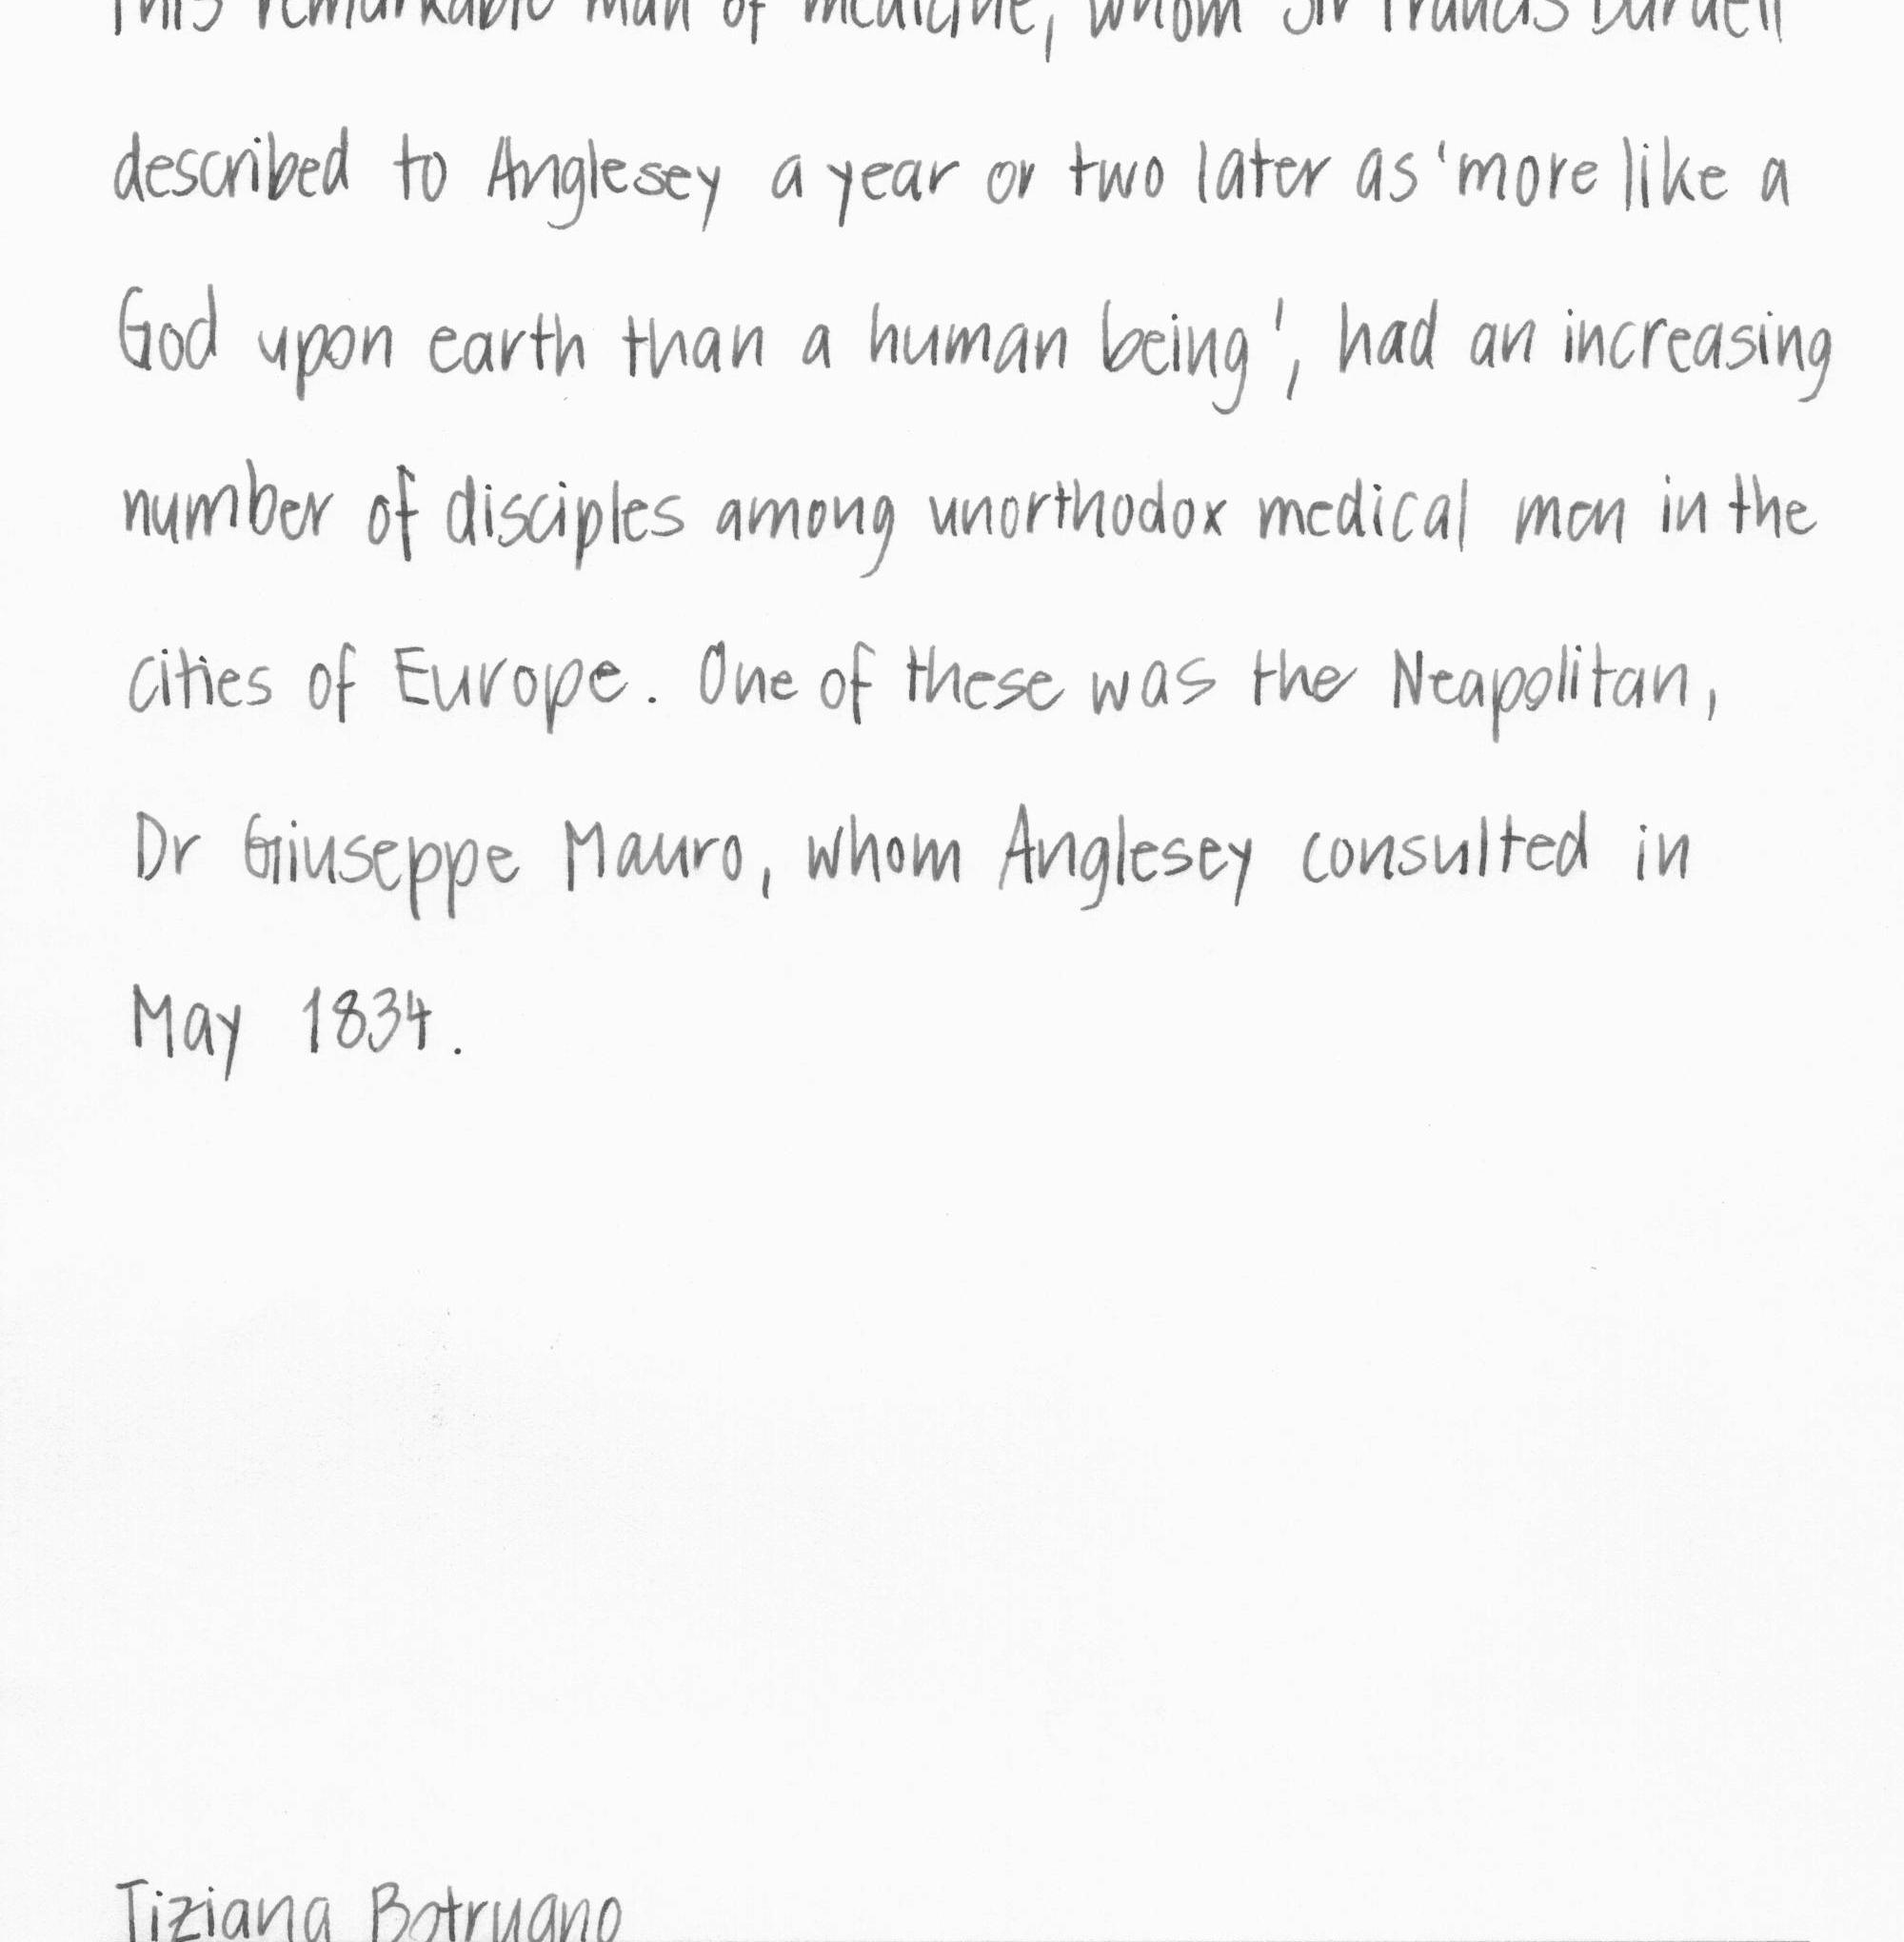 This remarkable man of medicine, whom Sir Francis Burdett
described to Anglesey a year or two later as 'more like a
God upon earth than a human being', had an increasing
number of disciples among unorthodox medical men in the
cities of Europe. One of these was the Neapolitan,
Dr Giuseppe Mauro, whom Anglesey consulted in
May 1834.
Tiziana Botrugno